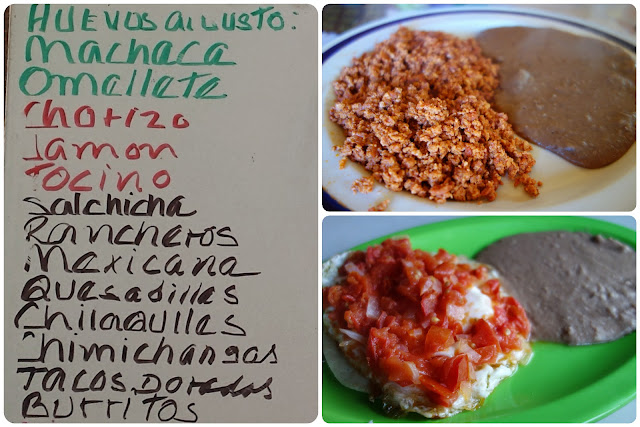 HUEVOS AL GUSTO:
Machaca
Omellete
Chorizo
Jamon
Tocino
Salchicha
Rancheros
Mexicana
Quesadillas
Chilaquiles
Chimichangas
Tacos Dorados
Burritos